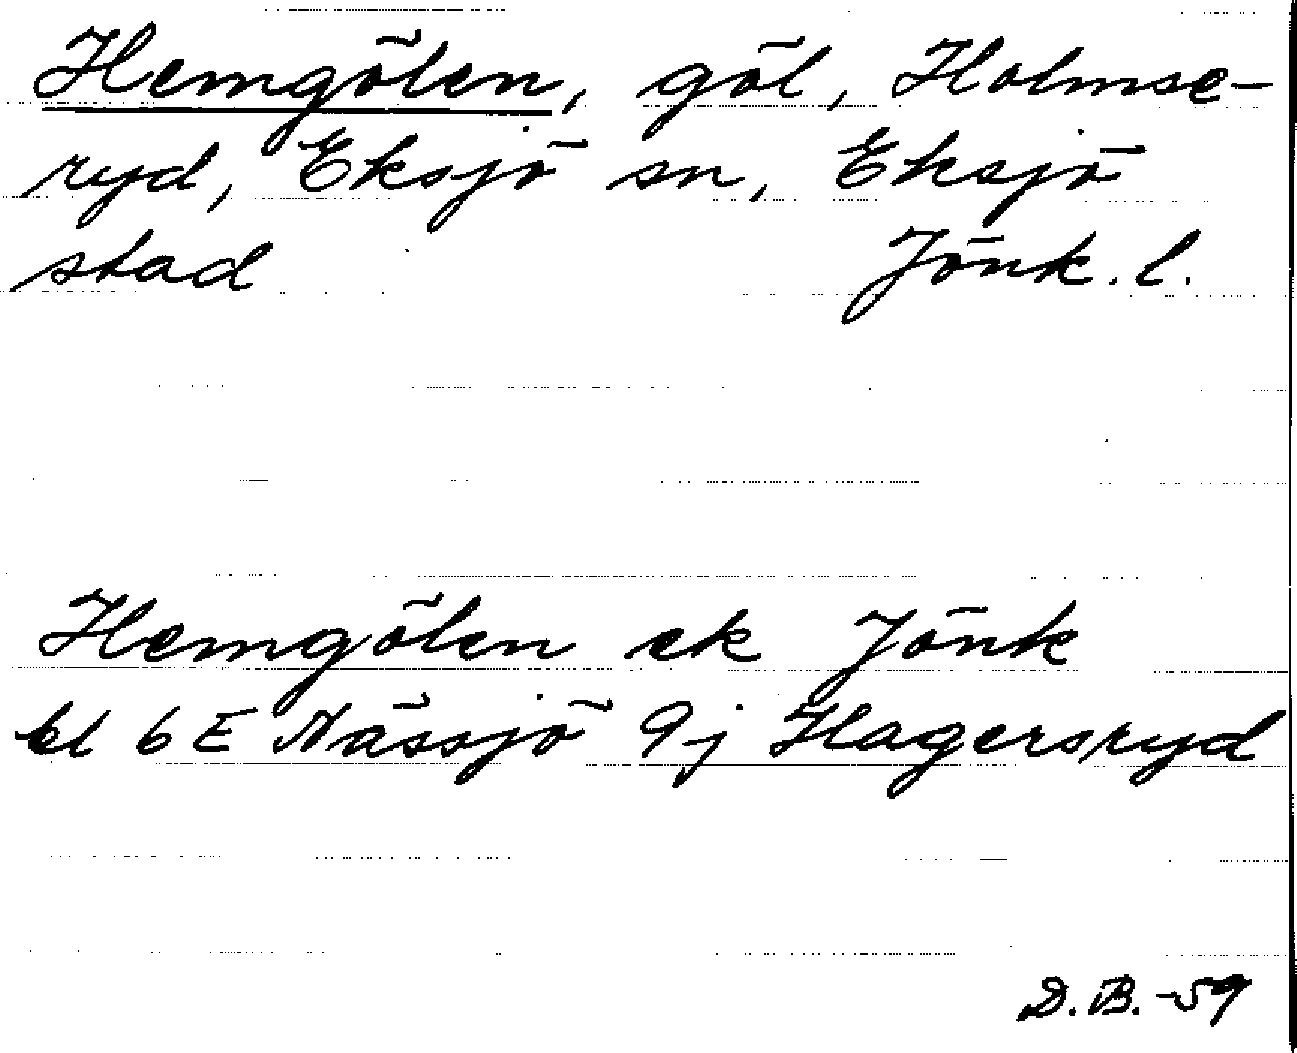 Hemgölen, göl, Holmse-
ryd, Eksjö sn, Eksjö
stad Jönk. l.
Hemgölen ek Jönk
bl 6E Nässjö 9j Hagersryd
D.B. -59